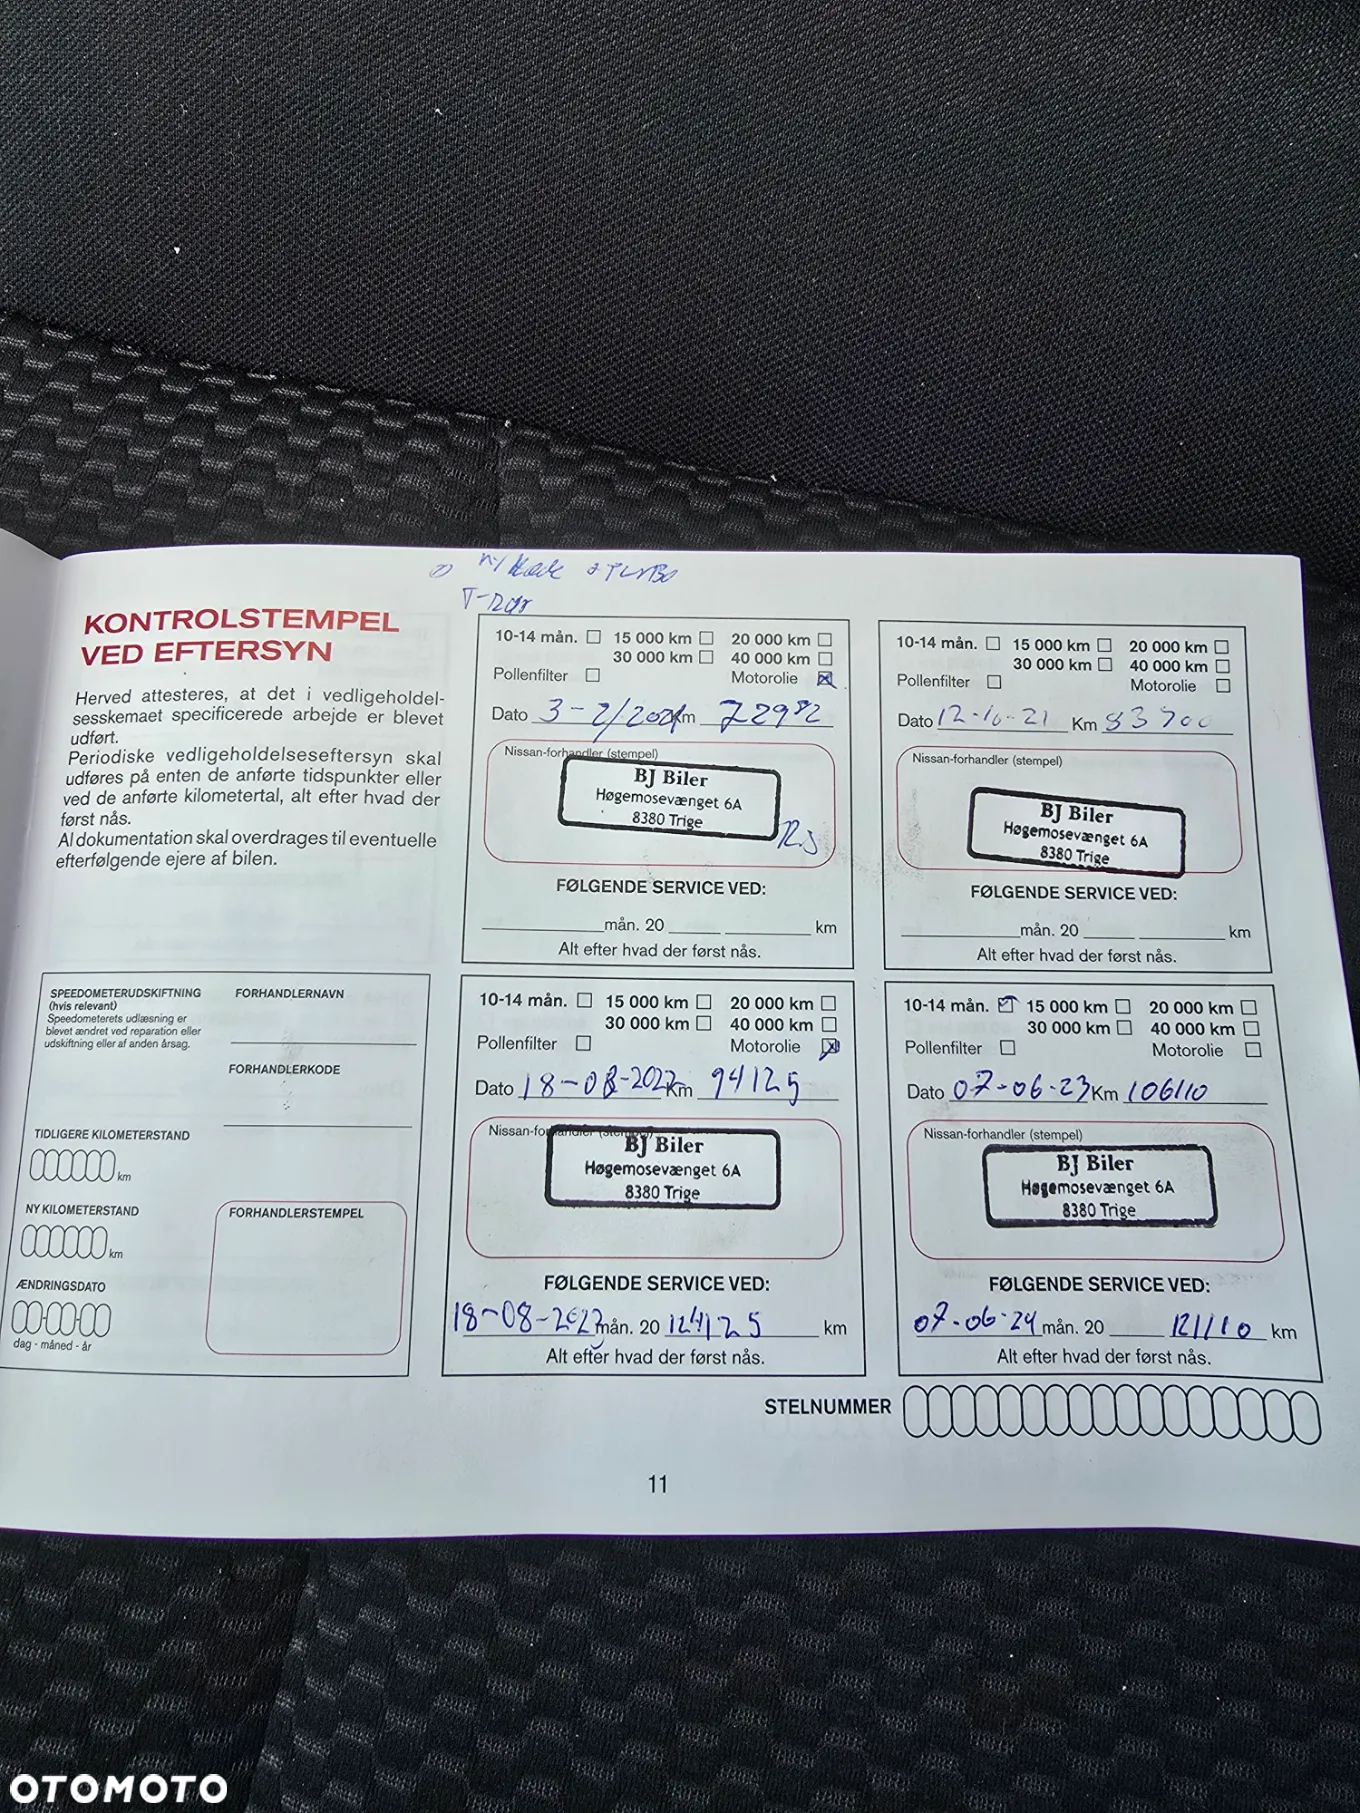 ny kæde + TURBO
KONTROLSTEMPEL
VED EFTERSYN
Herved attesteres, at det i vedligeholdel-
sesskemaet specificerede arbejde er blevet
udført.
Periodiske vedligeholdelseseftersyn skal
udføres på enten de anførte tidspunkter eller
ved de anførte kilometertal, alt efter hvad der
først nås.
Al dokumentation skal overdrages til eventuelle
efterfølgende ejere af bilen.
SPEEDOMETERUDSKIFTNING
(hvis relevant)
Speedometerets udlæsning er
blevet ændret ved reparation eller
udskiftning eller af anden årsag.
FORHANDLERNAVN
FORHANDLERKODE
TIDLIGERE KILOMETERSTAND
km
NY KILOMETERSTAND
km
ÆNDRINGSDATO
dag - måned - år
FORHANDLERSTEMPEL
10-14 mån. 15 000 km 20 000 km
30 000 km 40 000 km
Pollenfilter Motorolie
Dato 3-2/2021 Km 72982
Nissan-forhandler (stempel)
BJ Biler
Høgemosevænget 6A
8380 Trige
FØLGENDE SERVICE VED:
mån. 20 km
Alt efter hvad der først nås.
10-14 mån. 15 000 km 20 000 km
30 000 km 40 000 km
Pollenfilter Motorolie
Dato 12-10-21 Km 83700
Nissan-forhandler (stempel)
BJ Biler
Høgemosevænget 6A
8380 Trige
FØLGENDE SERVICE VED:
mån. 20 km
Alt efter hvad der først nås.
10-14 mån. 15 000 km 20 000 km
30 000 km 40 000 km
Pollenfilter Motorolie
Dato 18-08-2022 Km 94125
Nissan-forhandler (stempel)
BJ Biler
Høgemosevænget 6A
8380 Trige
FØLGENDE SERVICE VED:
18-08-2023 mån. 20 124125 km
Alt efter hvad der først nås.
10-14 mån. 15 000 km 20 000 km
30 000 km 40 000 km
Pollenfilter Motorolie
Dato 07-06-23 Km 106110
Nissan-forhandler (stempel)
BJ Biler
Høgemosevænget 6A
8380 Trige
FØLGENDE SERVICE VED:
07-06-24 mån. 20 121110 km
Alt efter hvad der først nås.
STELNUMMER
11
OTOMOTO